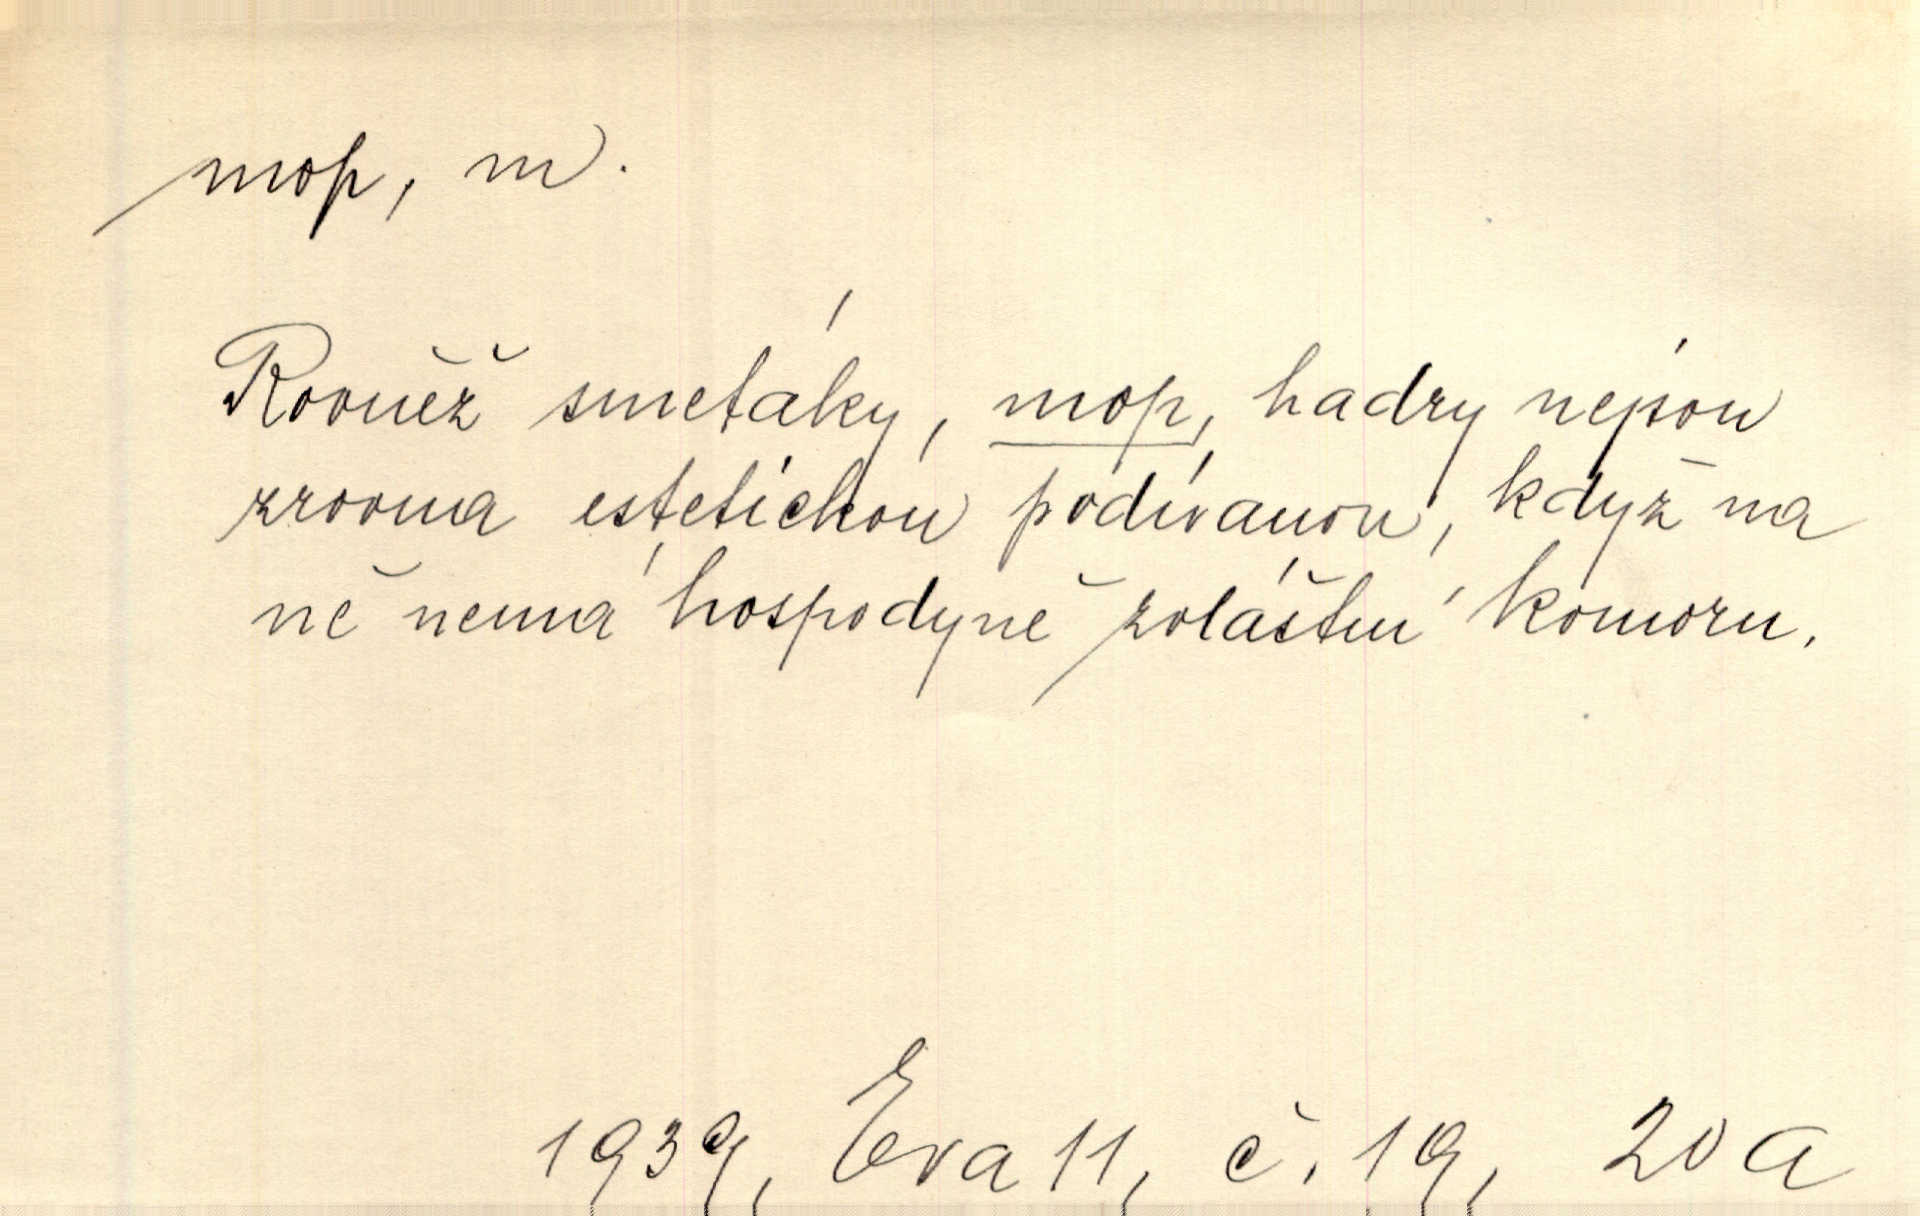 mop, m.
Rovněž smetáky, mop, hadry nejsou
zrovna estetickou podívanou, když na
ně nemá hospodyně zvláštní komoru.
1939, Eva 11, č. 19, 20a